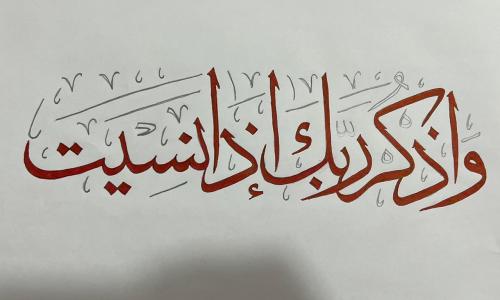 وَاذكُر رَّبَّك إِذَا نَسِيت